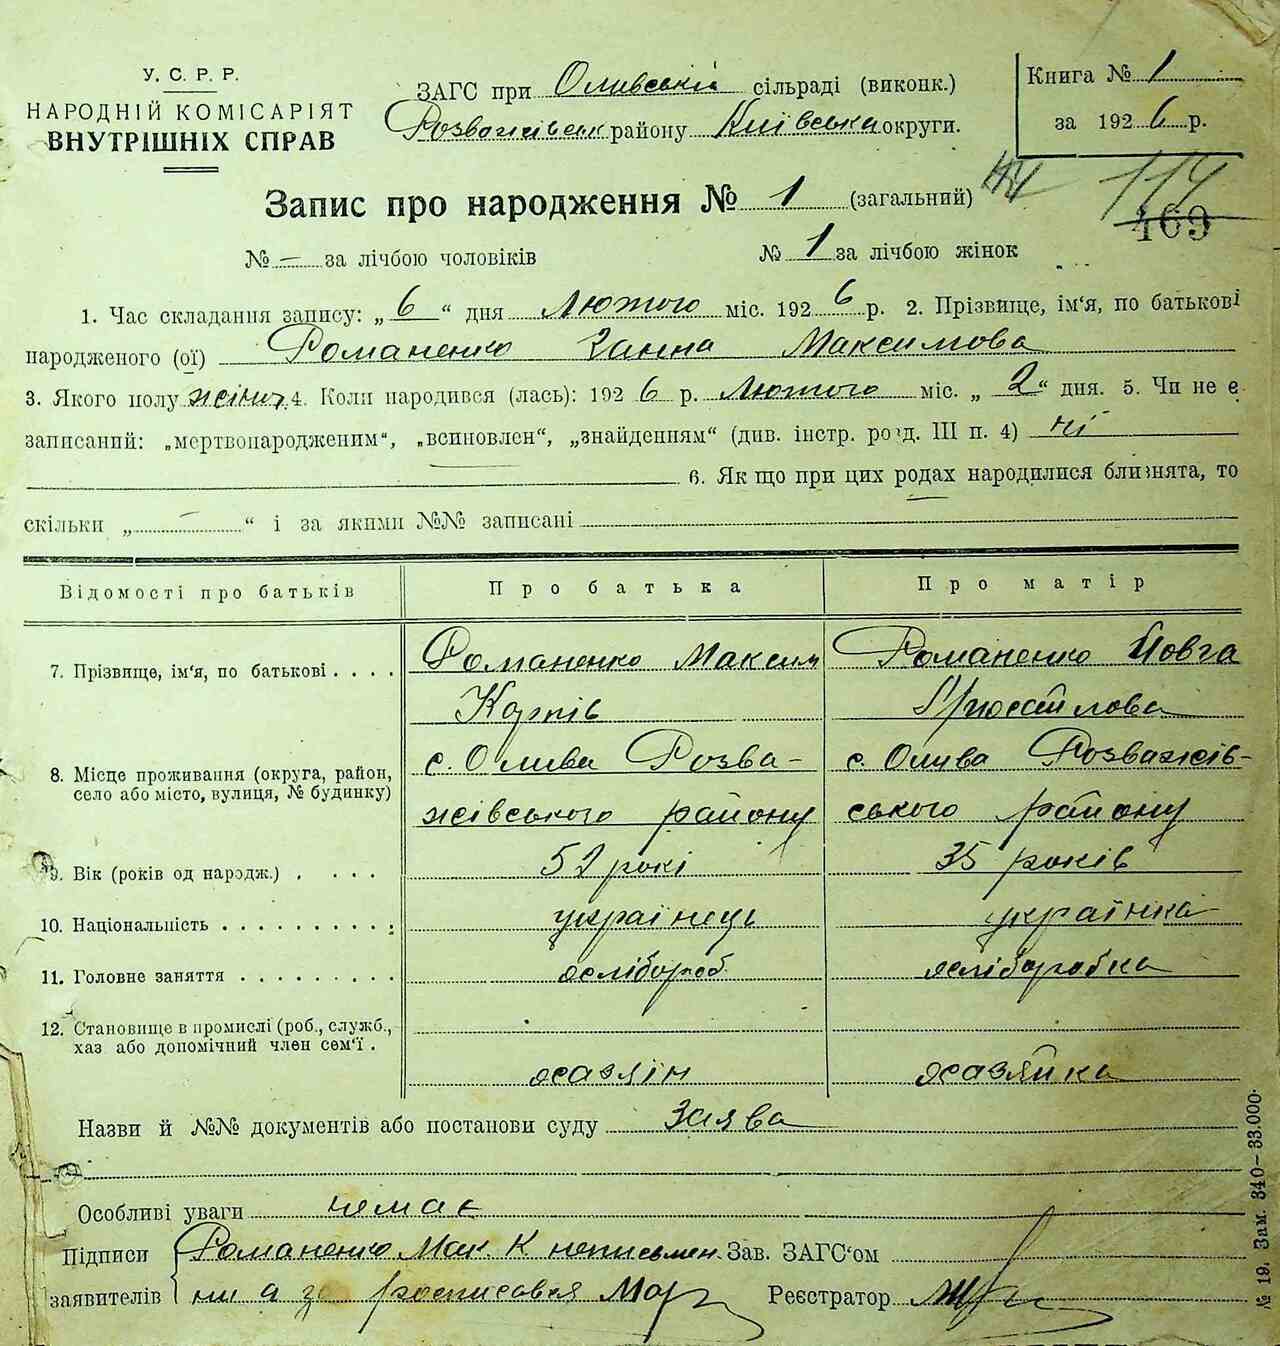 У. С. Р. Р.
НАРОДНІЙ КОМІСАРІЯТ
ВНУТРІШНІХ СПРАВ
ЗАГС при Оливській сільраді (виконк.)
Розважівськ району Київська округи.
Книга № 1
за 1926 р.
Запис про народження № 1 (загальний)
114
169
№ – за лічбою чоловіків № 1 за лічбою жінок
1. Час складання запису: „ 6 “ дня Лютого міс. 1926 р. 2. Прізвище, ім'я, по батькові
народженого (ої) Романенко Ганна Максимова
3. Якого полу жіноч. 4. Коли народився (лась): 1926 р. Лютого міс. „ 2 “ дня. 5. Чи не є
записаний: „мертвонародженим“, „всиновлен“, „знайденням“ (див. інстр. розд. III п. 4) ні
6. Як що при цих родах народилися близнята, то
скільки „ – “ і за якими №№ записані
Відомості про батьків Про батька Про матір
7. Прізвище, ім'я, по батькові . . . . Романенко Максим Романенко Йовга
Карпів
8. Місце проживання (округа, район, село або місто, вулиця, № будинку) с. Олива Розва- с. Олива Розважів-
жівського району ського району
9. Вік (років од народж.) . . . . 52 рокі 35 років
10. Національність . . . . . . . . . . українець українка
11. Головне заняття . . . . . . . . хлібороб хліборобка
12. Становище в промислі (роб., служб.,
хаз або допомічний член сем'ї . хазяїн хазяйка
Назви й №№ документів або постанови суду заява
Особливі уваги немає
Підписи Романенко Мак К неписьмен. Зав. ЗАГС'ом
заявителів ни а за росписався Реєстратор
№ 19. Зам. 340–33.000.